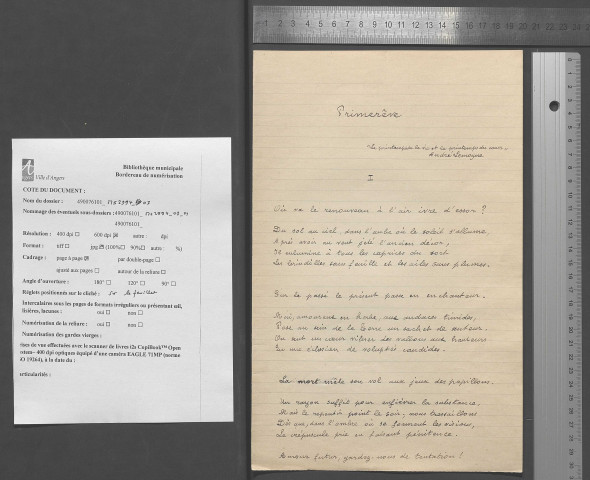 Ville d'Angers
Bibliothèque municipale
Bordereau de numérisation
COTE DU DOCUMENT :
Nom du dossier : 490076101_
Nommage des éventuels sous-dossiers : 490076101_
490076101_
Résolution : 400 dpi ☐ 600 dpi ☒ autre : dpi
Format : tiff ☐ jpg ☒ (100% ☐ 90% ☐ autre : %)
Cadrage : page à page ☒ par double-page ☐
ajusté aux pages ☐ autour de la reliure ☐
Angle d'ouverture : 180° ☐ 120° ☐ 90° ☐
Réglets positionnés sur le cliché :
Intercalaires sous les pages de formats irréguliers ou présentant
lisérés, lacunes : oui ☐ non ☐
Numérisation de la reliure : oui ☐ non ☐
Numérisation des gardes vierges :
ises de vue effectuées avec le scanner de livres i2s CopiBook™ Open
System- 400 dpi optiques équipé d'une caméra EAGLE 71MP (norme
ISO 19264), à la date du :
articularités :
Primerêve
Le printemps et le printemps du
André Lemoyne
I
Où va le renouveau à l'air ivre d'essor ?
Du sol au ciel, dans l'aube où le soleil s'allume,
Après avoir au vent jeté l'ancien décor,
Il à tous les caprices du sort
Les brindilles sans feuille et les ailes sans plumes.
Sur le passé le présent passe en enchanteur.
Mai, amoureux en herbe, aux audaces timides,
Pose au sein de la Terre un sachet de senteur.
On sent un cœur vibrer des vallons aux hauteurs
En une éclosion de voluptés candides.
La mort mêle son vol aux jeux des papillons.
Un rayon suffit pour enfiévrer la substance.
Mais le repentir point le soir, nous tressaillons
Dès que, dans l'ombre, où se forment les visions,
Le crépuscule prie en faisant pénitence.
Amours futurs, gardez-nous de tentation !